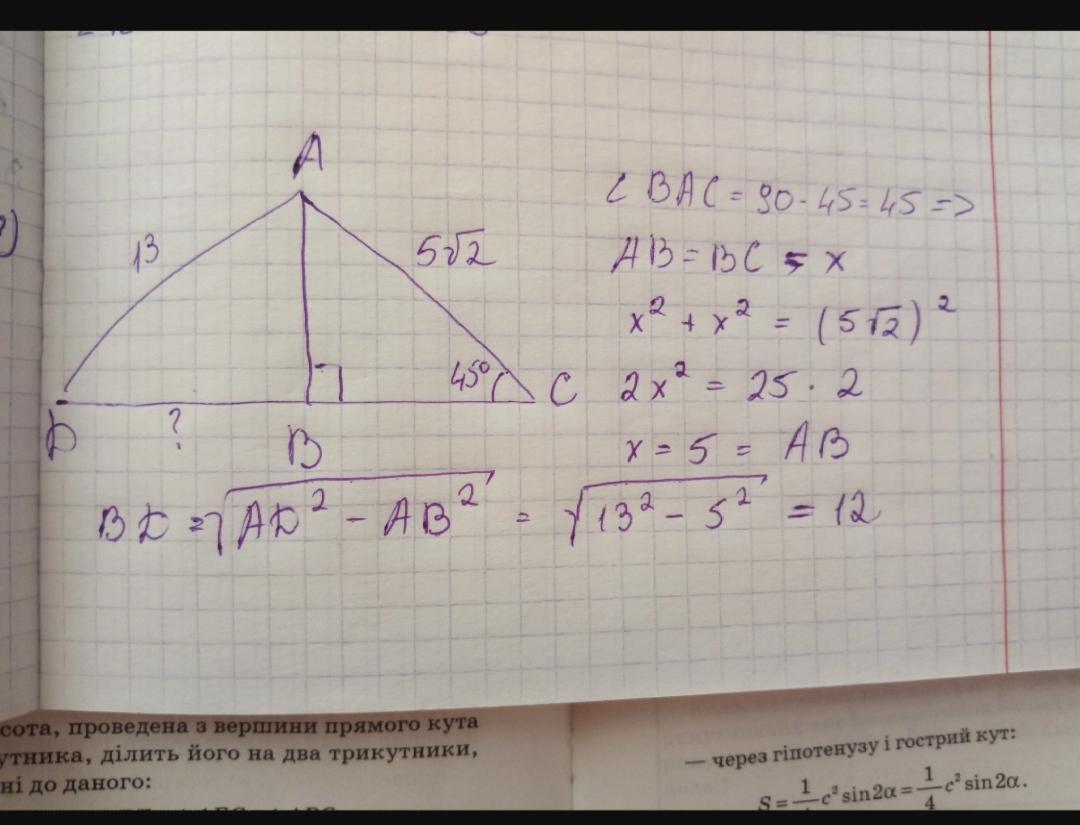 A
13
5√2
45°
D
?
B
C
∠ BAC = 90 - 45 = 45 =>
AB = BC = x
x² + x² = (5√2)²
2x² = 25 · 2
x = 5 = AB
BD = √AD² - AB² = √13² - 5² = 12
сота, проведена з вершини прямого кута
утника, ділить його на два трикутники,
ні до даного:
— через гіпотенузу і гострий кут:
c² sin2α = 1/4 c² sin2α.